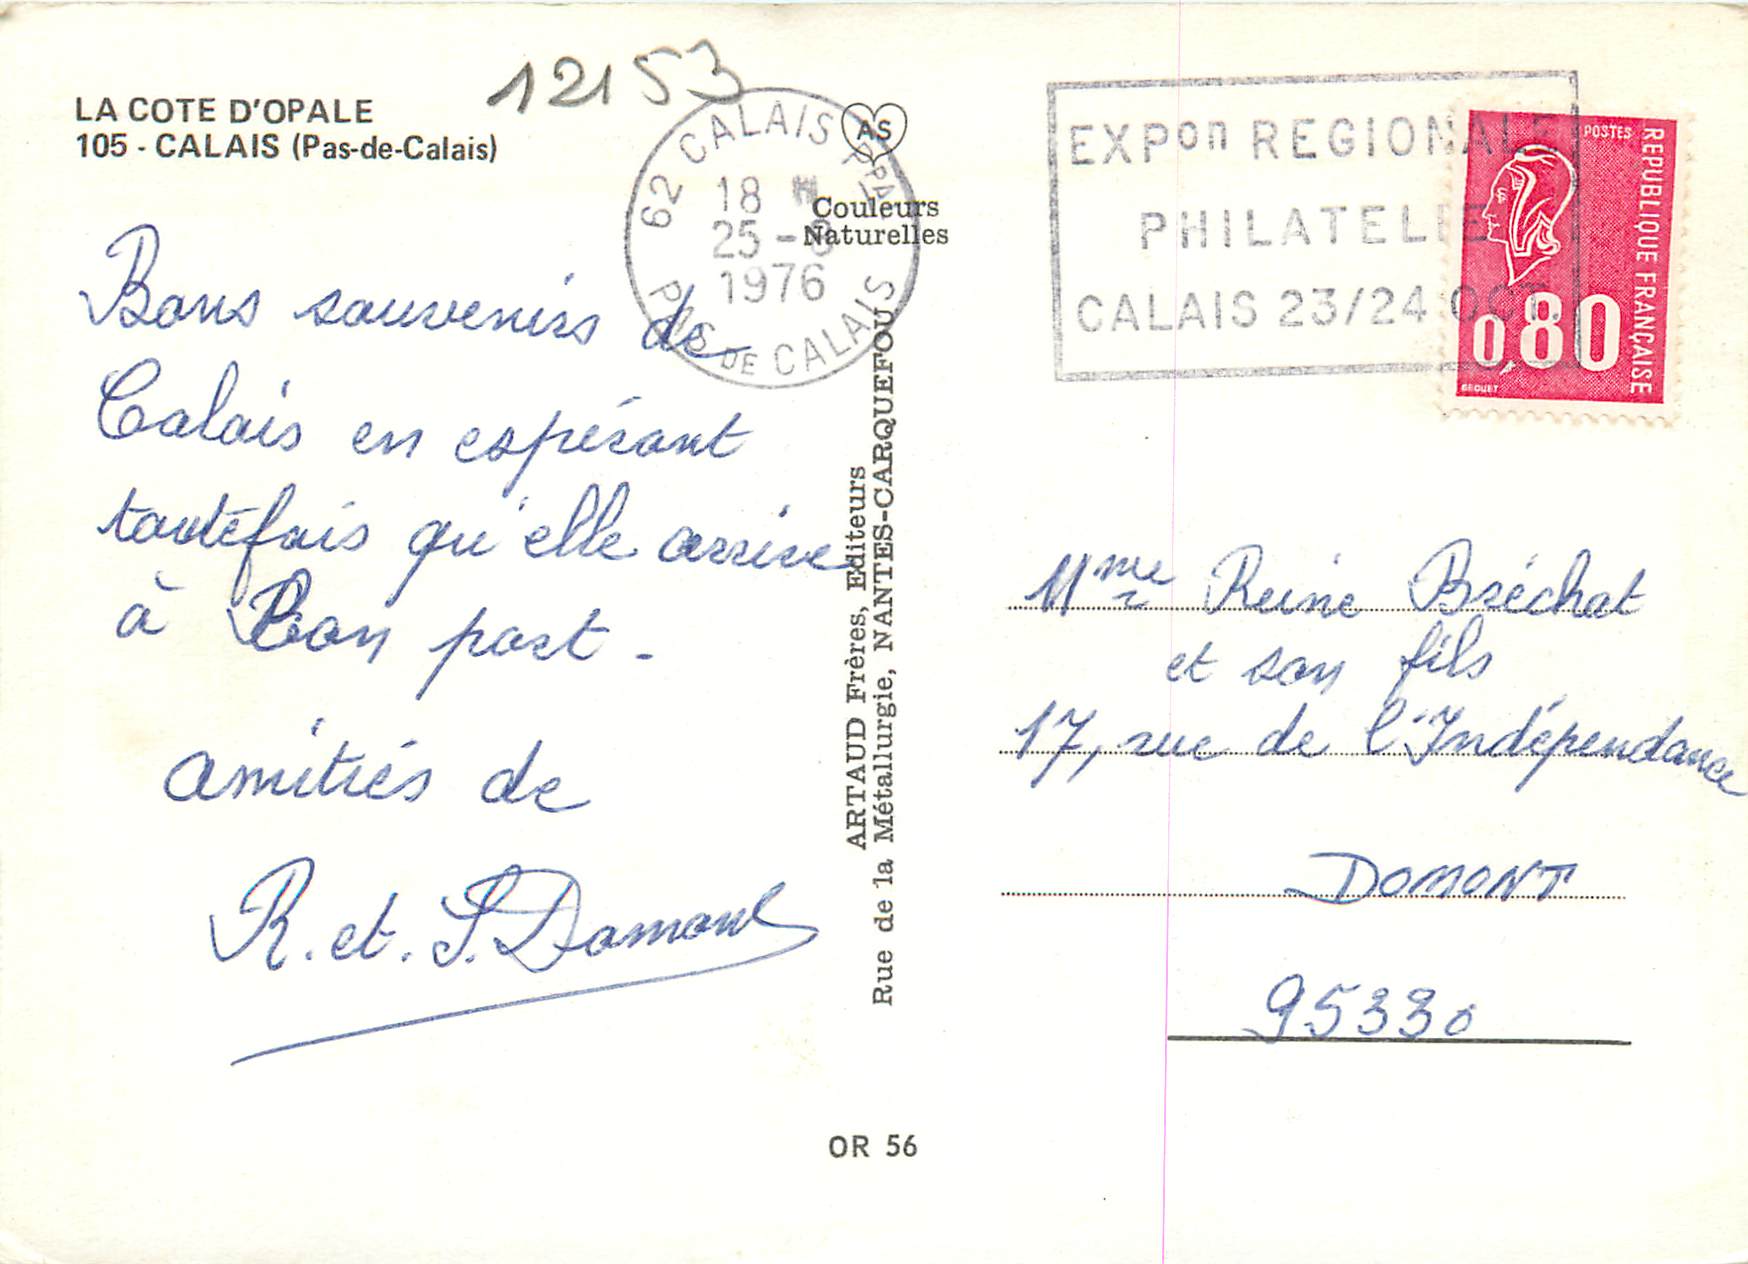 LA COTE D'OPALE
105 - CALAIS (Pas-de-Calais)
12153
62 CALAIS R.P.
18 H
25 -
1976
PAS DE CALAIS
AS
Couleurs
Naturelles
EXPon REGIONALE
PHILATELIE
CALAIS 23/24 OCT.
POSTES
REPUBLIQUE FRANÇAISE
0,80
BEQUET
Bons souvenirs de
Calais en espérant
toutefois qu'elle arrive
à Bon port -
amitiés de
R. et. S.
ARTAUD Frères, Editeurs
Rue de la Métallurgie, NANTES-CARQUEFOU
Mme Reine Bréchat
et son fils
17, rue de l'Indépendance
DOMONT
95330
OR 56